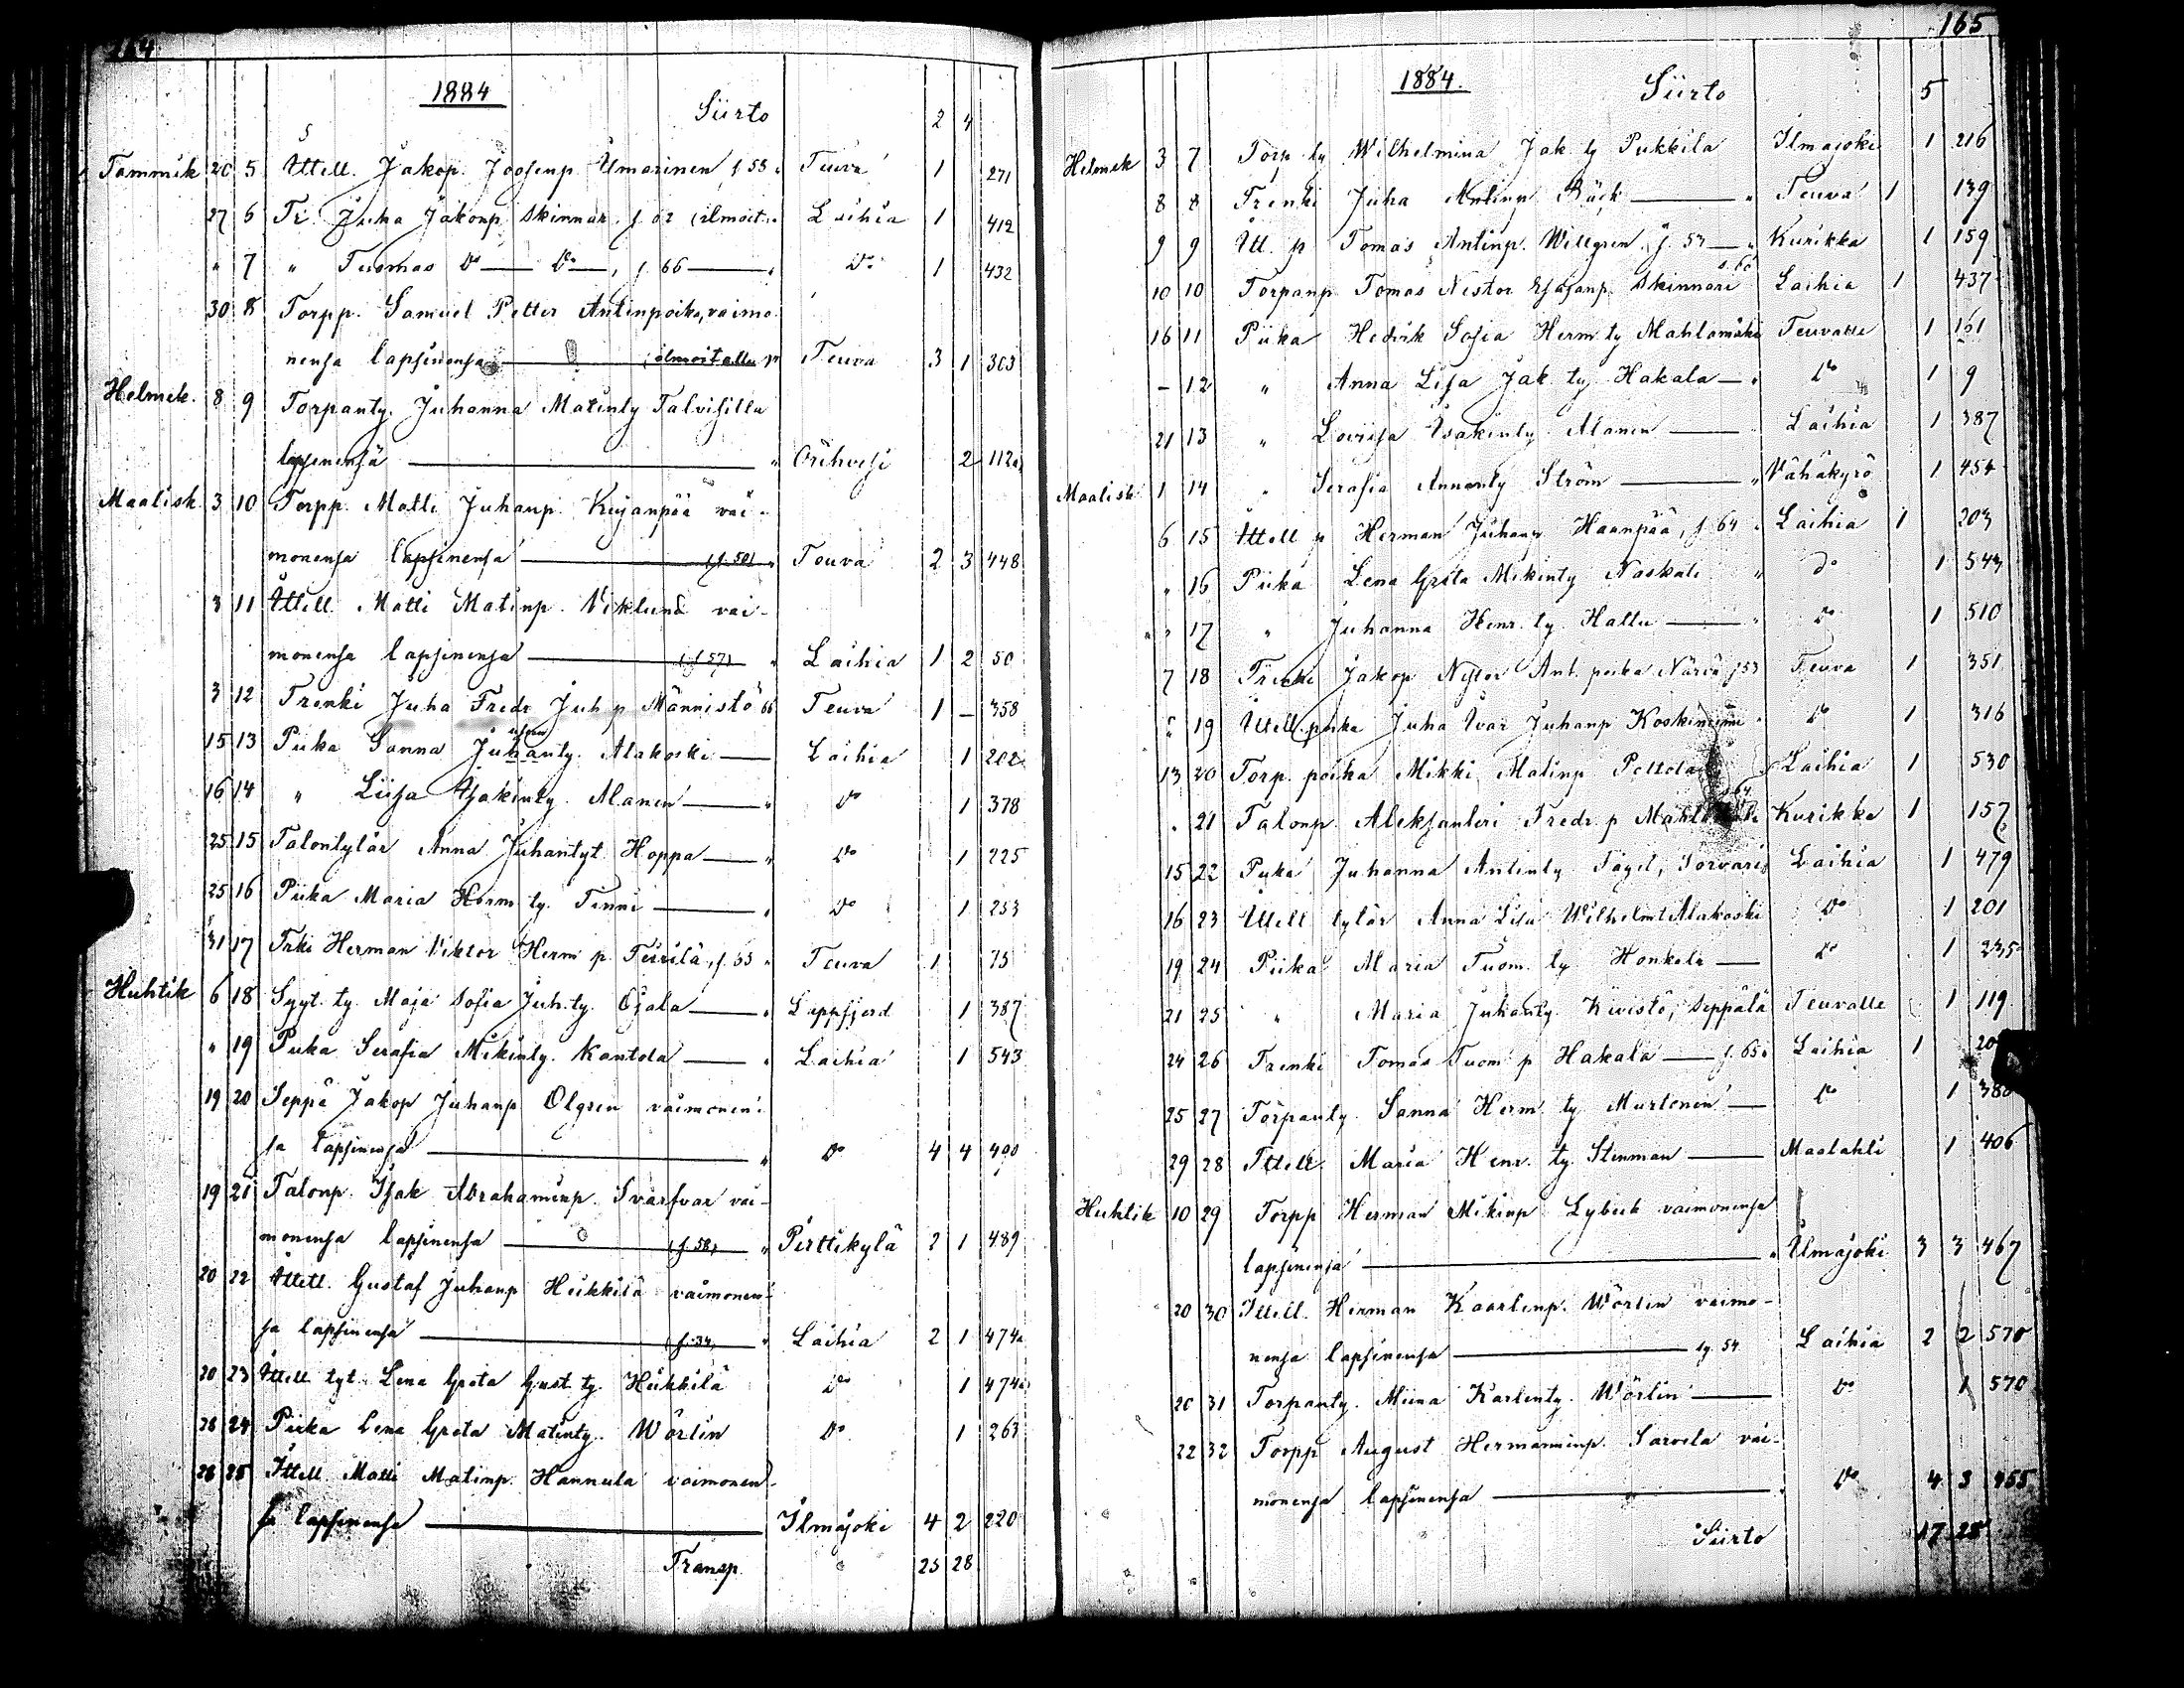 164
1884
Siirto 2 4
Tammik 26 5 Ittell. Jakop. Joosenp. Ilmarinen f 55 Teuva 1 271
27 6 Tr. Juha Jakonp. Skinnar. f. 62 (ilmoit. Laihia 1 412
" 7 " Tuomas Do Do, f. 66 Do 1 432
30 8 Torpp. Samuel Petter Antinpoika, vaimo-
nensa lapsinensa Teuva 3 1 303
Helmik. 8 9 Torpanty. Juhanna Matinty Talvisilla
lapsinensä Orihvesi 2 112
Maalisk 3 10 Torpp. Matti Juhanp. Kujanpää vai-
monensa lapsinensa (f. 50) Teuva 2 3 448
3 11 Ittell. Matti Matinp. Viklund vai-
monensa lapsinensa (f 57) Laihia 1 2 50
3 12 Trenki Juha Fredr Juh p Männistö 66 Teuva 1 – 358
15 13 Piika Sanna Juhanty. Alakoski Laihia 1 202
16 14 " Liisa Isakinty. Alanen Do 1 378
25 15 Talontytär Anna Juhantyt. Hoppa Do 1 225
25 16 Piika Maria Herm ty. Finni Do 1 253
31 17 Trki Herman Viktor Herm p. Teirilä, f. 55 Teuva 1 75
Huhtik 6 18 Syyt. ty. Maja Sofia Juh.ty. Ojala Lappfjerd 1 387
" 19 Piika Serafia Mikinty. Kantola Laihia 1 543
19 20 Seppä Jakop Juhanp Olgren vaimonen-
sa lapsinensa Do 4 4 400
19 21 Talonp. Isak Abrahaminp. Svarfvar vai-
monensa lapsinensa (f. 58) Pirttikylä 2 1 489
20 22 Ittell. Gustaf Juhanp Heikkilä vaimonen-
sa lapsinensa (f. 34) Laihia 2 1 474
20 23 Ittell tyt. Lena Greta Gust. ty. Heikkilä Do 1 474
28 24 Piika Lena Greta Matinty. Wörlin Do 1 263
28 25 Ittell. Matti Matinp. Hannula vaimonen-
sa lapsinensa Ilmajoki 4 2 220
Transp. 25 28
165
1884.
Siirto 5
Helmik 3 7 Torp. ty Wilhelmina Jak ty Pukkila Ilmajoki 1 216
8 8 Trenki Juha Antinp Bäck Teuva 1 139
9 9 Itt. p Tomas Antinp. Willgren f. 53 Kurikka 1 159
10 10 Torpanp Tomas Nestor Esasanp Skinnari Laihia 1 437
16 11 Piika Hedvik Sofia Herm ty Mahlamäki Teuvalle 1 161
– 12 " Anna Lisa Jak. ty. Hakala Do 1 9
21 13 " Lovisa Isakinty Alanen Laihia 1 387
Maalisk 1 14 " Serafia Annanty Ström Vähäkyrö 1 454
6 15 Ittell p Herman Juhanp Haanpää, f. 64 Laihia 1 203
" 16 Piika Lena Greta Mikinty Naskali Do 1 543
" 17 " Juhanna Henr. ty. Hallu Do 1 510
7 18 Trenki Jakop Nestor Ant. poika Närvä f 53 Teuva 1 351
" 19 Ittell. poika Juha Ivar Juhanp Koskiniemi Do 1 316
13 20 Torp. poika Mikki Matinp Laihia 1 530
" 21 Talonp. Aleksanteri Fredr. p Kurikka 1 157
15 22 Piika Juhanna Antinty Fågel, Sorvaris Laihia 1 479
16 23 Ittell tytär Anna Lisa Wilhelmt Alakoski Do 1 201
19 24 Piika Maria Tuom. ty. Honkala Do 1 235
21 25 " Maria Juhanty. Kivistö, Seppälä Teuvalle 1 119
24 26 Trenki Tomas Tuom p Hakala f. 65 Laihia 1 20
25 27 Torpanty. Sanna Herm. ty. Murtonen Do 1 380
29 28 Ittell. Maria Henr. ty. Stenman Maalahti 1 406
Huhtik 10 29 Torpp Herman Mikinp Lybeck vaimonensa
lapsinensa Ilmajoki 3 3 467
20 30 Ittell. Herman Kaarlinp. Wörlin vaimo-
nensa lapsinensa 54 Laihia 2 2 570
20 31 Torpanty. Miina Karlinty. Wörlin Do 1 570
22 32 Torpp August Hermanninp. Sarvela vai-
monensa lapsinensa Do 4 3 455
Siirto 17 25